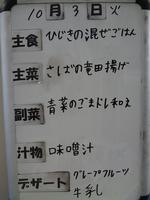 10月3日火
主食 ひじきの混ぜごはん
主菜 さしばの竜田揚げ
副菜 青菜のごまドレ和え
汁物 味噌汁
デザート グレープフルーツ
牛乳